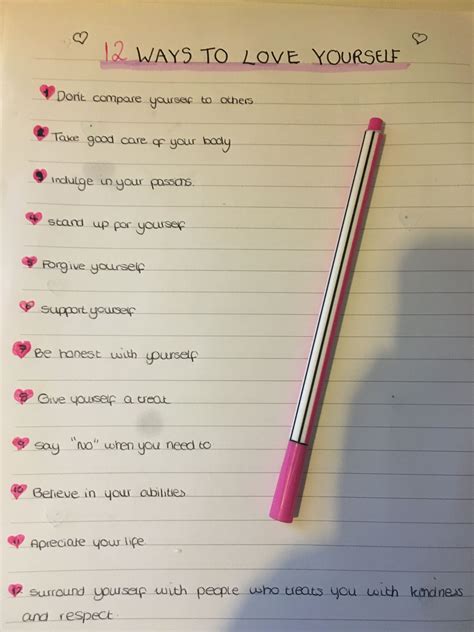 12 WAYS TO LOVE YOURSELF
1 Don't compare yourself to others
2 Take good care of your body
3 Indulge in your passions.
4 Stand up for yourself
5 Forgive yourself
6 Support yourself
7 Be honest with yourself
8 Give yourself a treat
9 Say "No" when you need to
10 Believe in your abilities
11 Apreciate your life
12 Surround yourself with people who treats you with kindness
and respect.